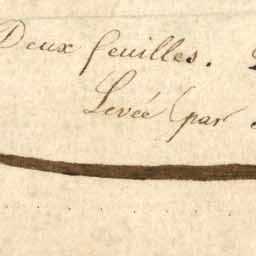 Deux feuilles.
Levée (par